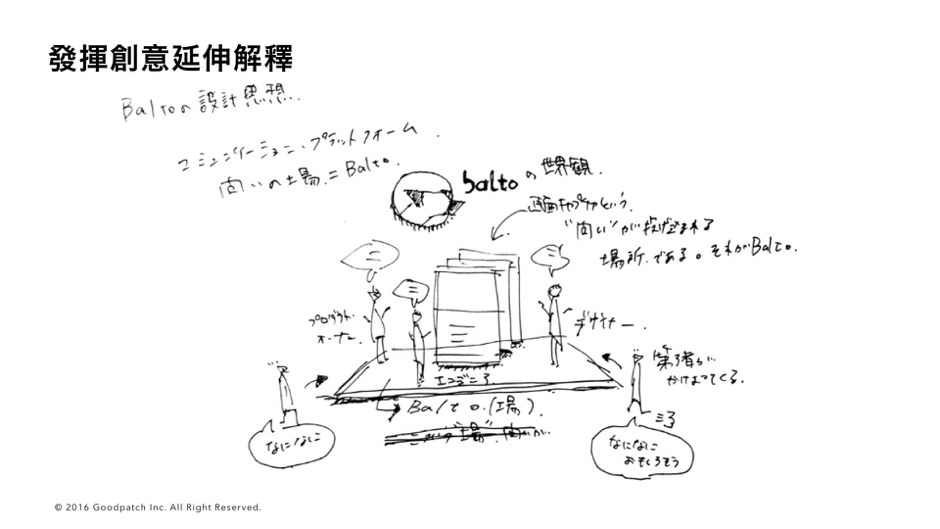 發揮創意延伸解釋
Baltoの設計思想.
コミュニケーション・プラットフォーム.
問いの土場. = Balto.
balto の世界観.
画面キャプチャという.
"問い"が投げ込まれる
場所.である。それがBalto.
プロダクト
オーナー.
デザイナー.
エンジニア
第3者が
かけよってくる.
Balto.(土場).
なになに
なになに
おもしろそう
© 2016 Goodpatch Inc. All Right Reserved.